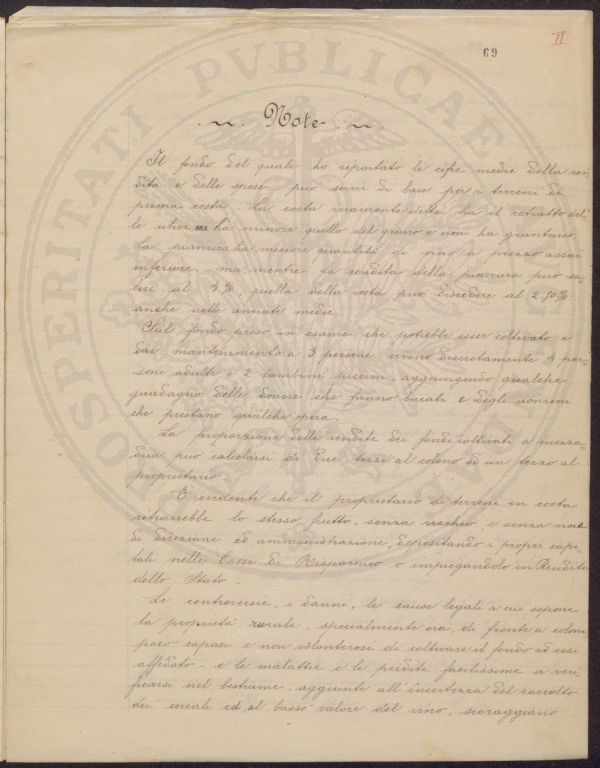 II
69
Note
Il fondo del quale ho riportato le cifre medie della ren-
dita e delle spese può servir di base per i terreni di
prima costa. La costa veramente detta ha il retratto del-
le ulive ma ha minore quello del grano e non ha granturco.
La pianura ha minore quantità di vino a prezzo assai
inferiore, ma, mentre la rendita della pianura può sa-
lire al 4%, quella della costa può discendere al 2.50%
anche nelle annate medie.
Sul fondo preso in esame che potrebbe esser coltivato e
dar mantenimento a 3 persone, vivono discretamente 4 per-
sone adulte e 2 bambini piccini, aggiungendo qualche
guadagno delle donne che fanno bucati e degli uomini
che prestano qualche opera.
La proporzione delle rendite dei fondi coltivati a mezza-
dria può calcolarsi di due terzi al colono ed un terzo al
proprietario.
È evidente che il proprietario di terreni in costa
ritrarrebbe lo stesso frutto, senza rischio e senza noie
di direzione ed amministrazione, depositando i propri capi-
tali nelle Casse di Risparmio o impiegandolo in Rendita
dello Stato.
Le controversie, i danni, le cause legali a cui espone
la proprietà rurale, specialmente ora, di fronte a coloni
poco capaci e non volonterosi di coltivare il fondo ad essi
affidato - e le malattie e le perdite facilissime a veri-
ficarsi nel bestiame, aggiunte all'incertezza del raccolto
dei cereali ed al basso valore del vino, scoraggiano
PROSPERITATI PVBLICAE